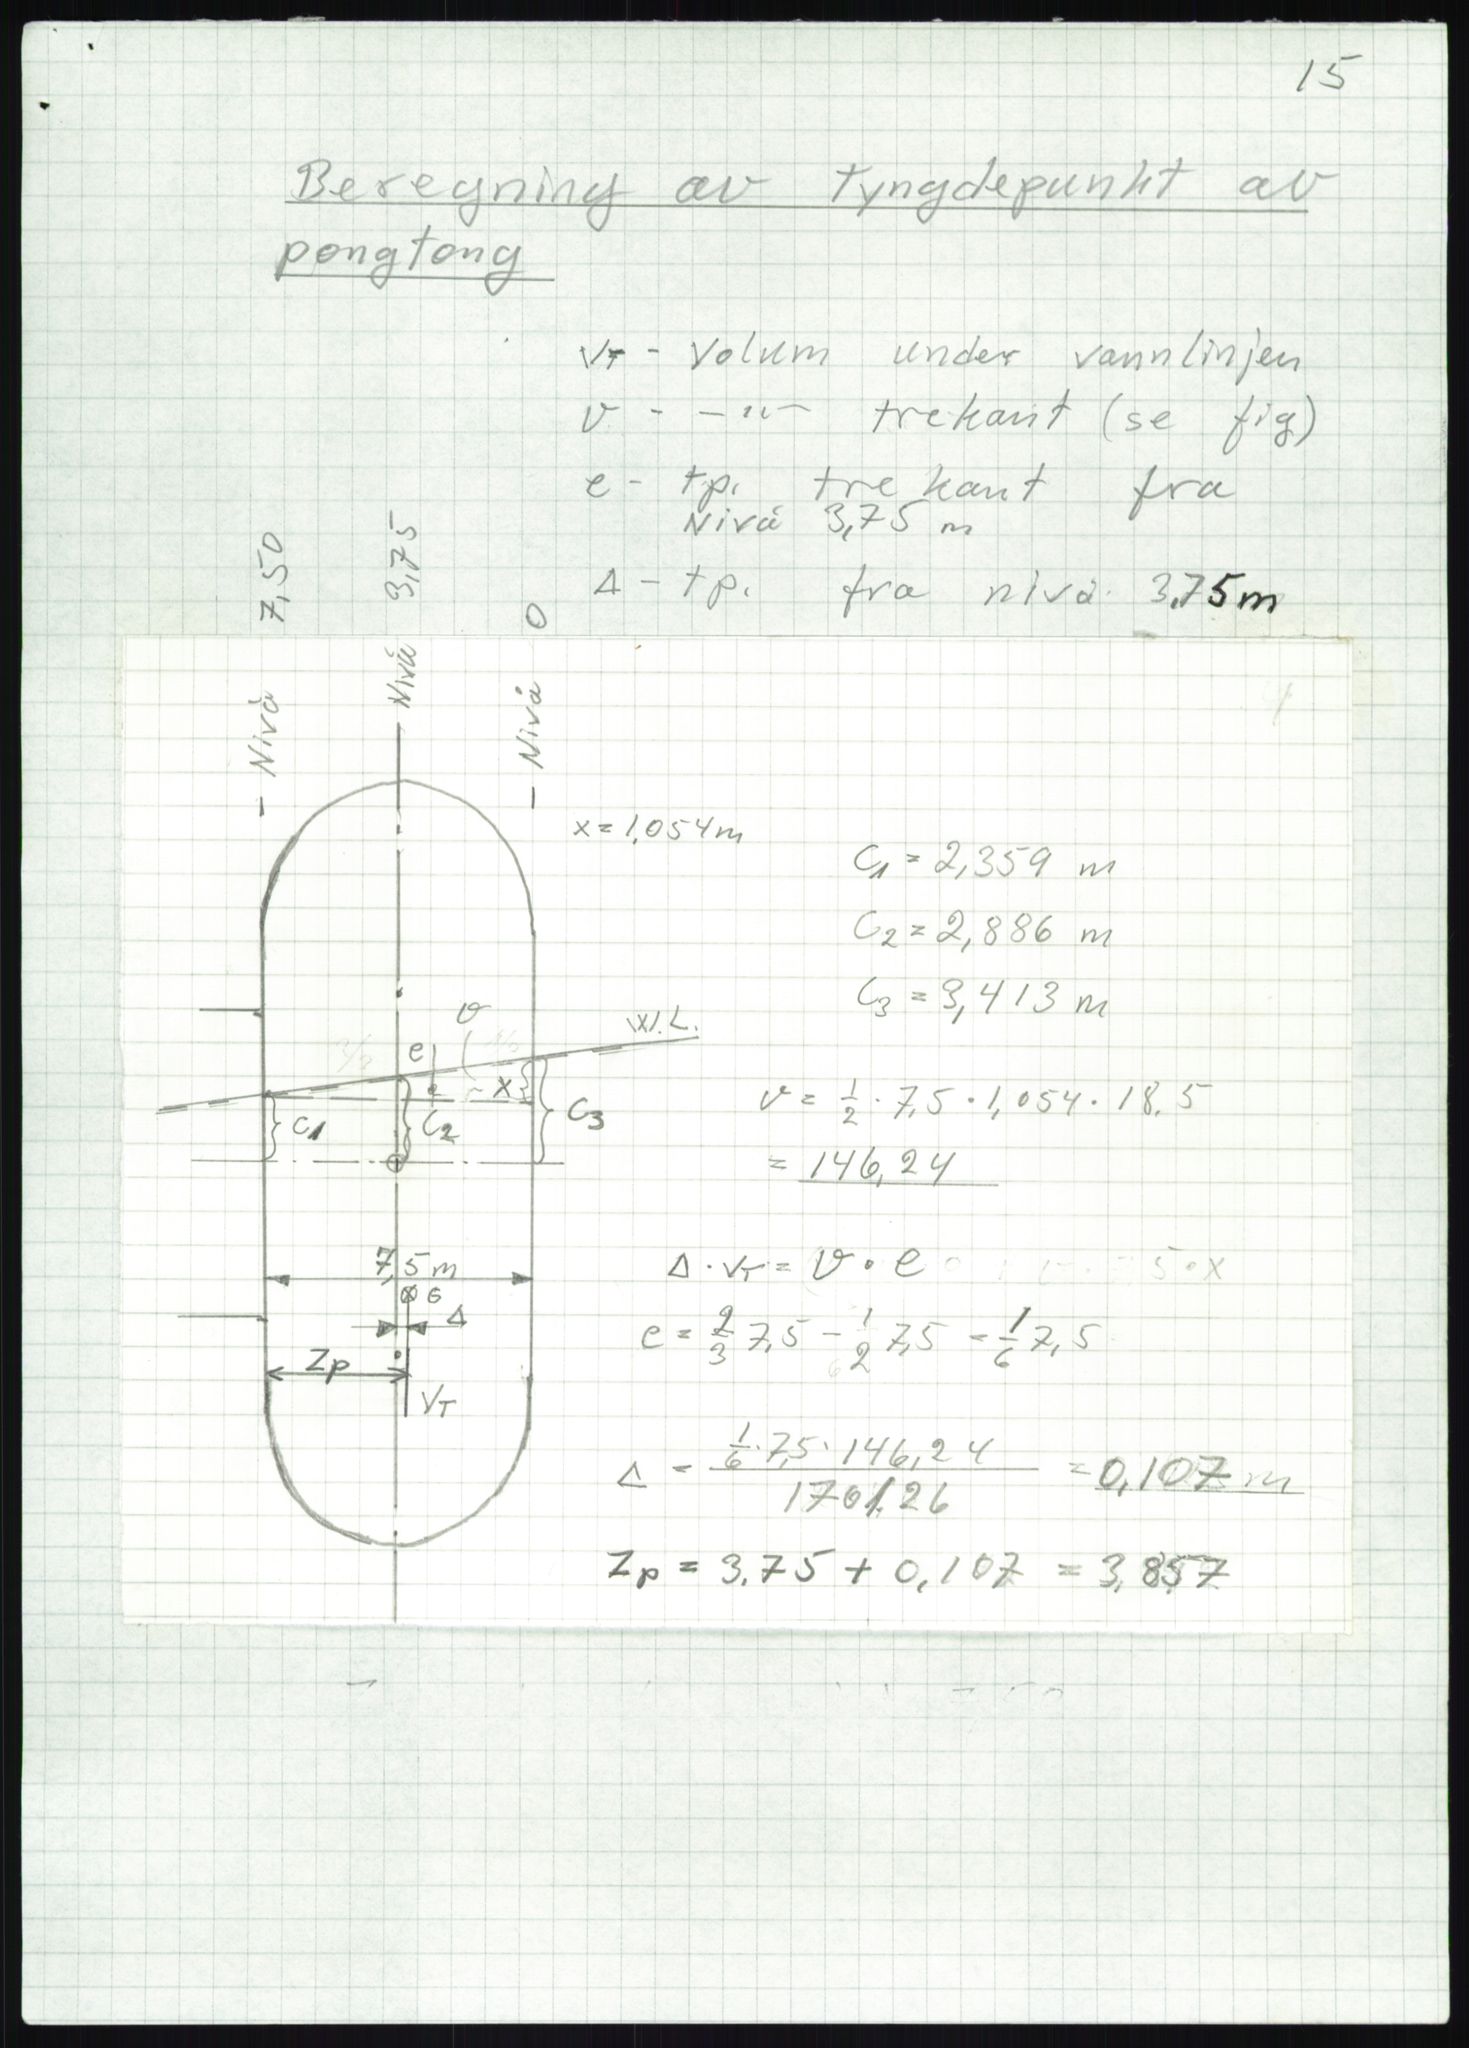 15
Beregning av tyngdepunkt av
pongtong
VT - Volum under vannlinjen
v - -"- trekant (se fig)
e - tp. trekant fra
Nivå 3,75 m
Δ - tp. fra nivå 3,75 m
- Nivå 7,50
- Nivå 3,75
- Nivå 0
x = 1,054 m
C1 = 2,359 m
C2 = 2,886 m
C3 = 3,413 m
v
W.L.
e
x
C1
C2
C3
v = 1/2 · 7,5 · 1,054 · 18,5
= 146,24
7,5 m
G
Δ
Zp
VT
Δ · VT = v · e
e = 2/3 7,5 - 1/2 7,5 = 1/6 7,5
Δ = 1/6 · 7,5 · 146,24 / 1701,26 = 0,107 m
Zp = 3,75 + 0,107 = 3,857